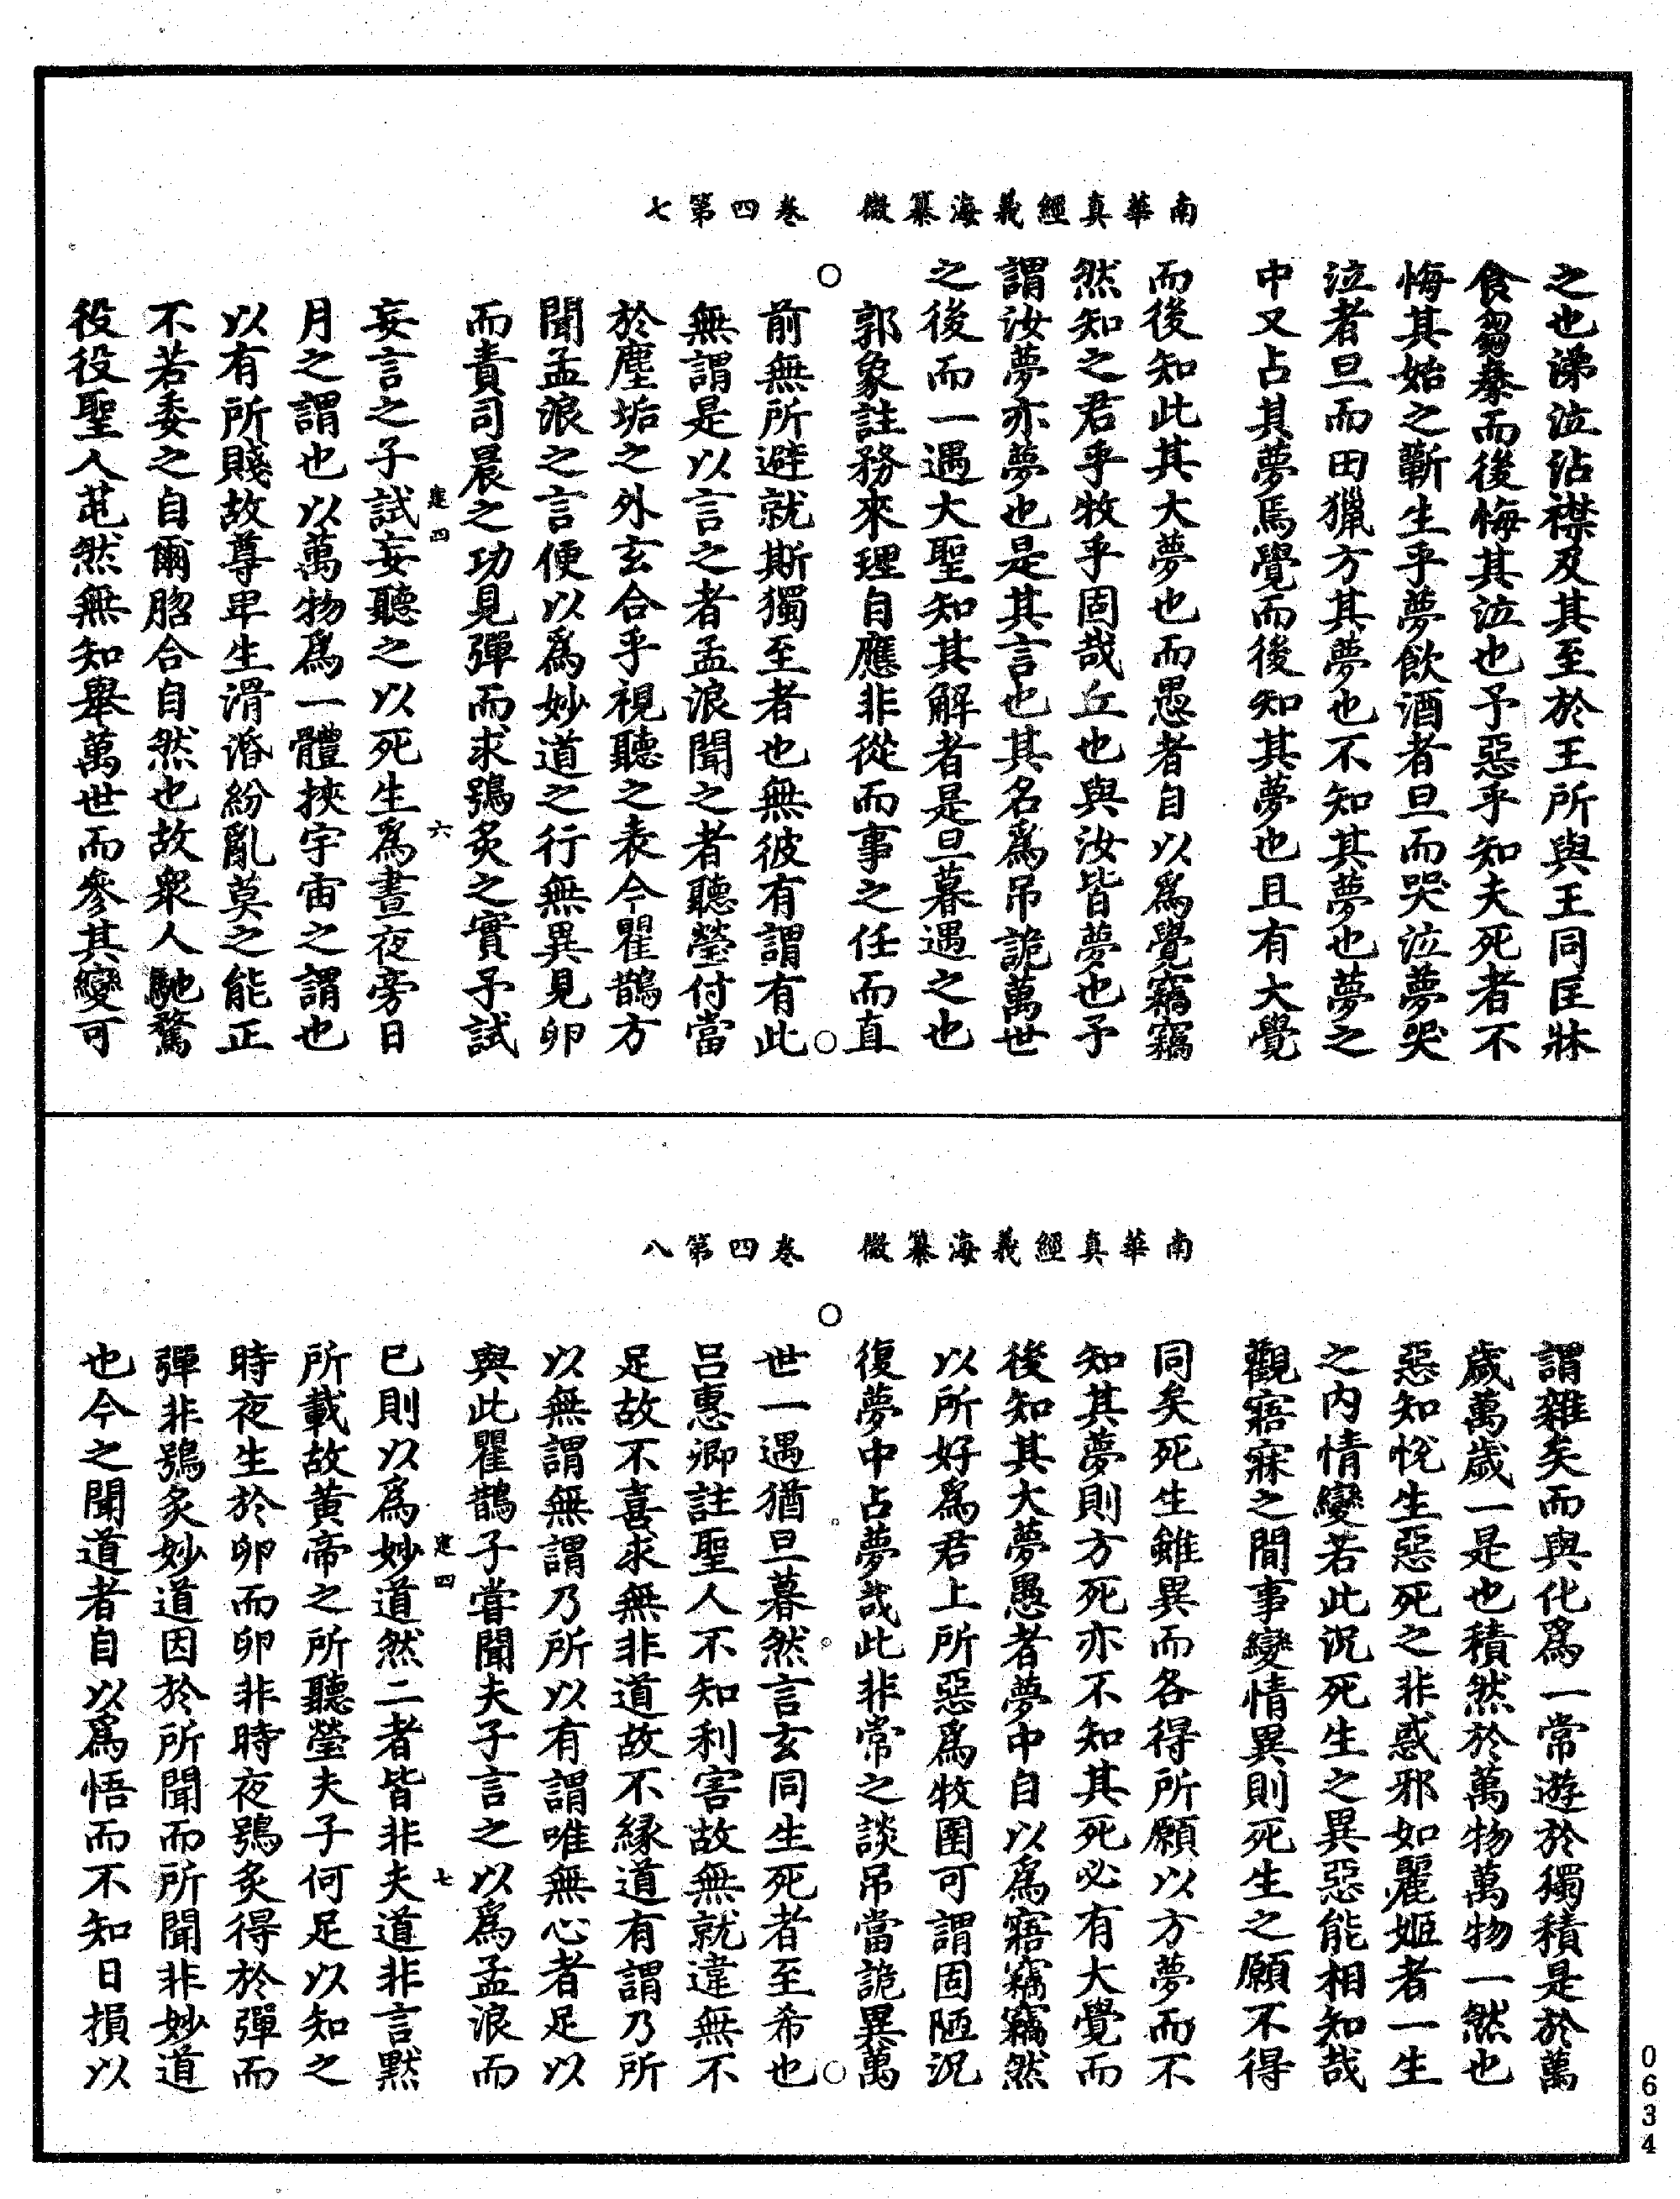 南華真經義海纂微　卷四第七
之也涕泣沾襟及其至於王所與王同匡牀
食芻豢而後悔其泣也予惡乎知夫死者不
悔其始之蘄生乎夢飲酒者旦而哭泣夢哭
泣者旦而田獵方其夢也不知其夢也夢之
中又占其夢焉覺而後知其夢也且有大覺
而後知此其大夢也而愚者自以爲覺竊竊
然知之君乎牧乎固哉丘也與汝皆夢也予
謂汝夢亦夢也是其言也其名爲吊詭萬世
之後而一遇大聖知其解者是旦暮遇之也
郭象註務來理自應非從而事之任而直
前無所避就斯獨至者也無彼有謂有此
無謂是以言之者孟浪聞之者聽瑩付當
於塵垢之外玄合乎視聽之表今瞿鵲方
聞孟浪之言便以爲妙道之行無異見卵
而責司晨之功見彈而求鴞炙之實予試
建四　六
妄言之子試妄聽之以死生爲晝夜旁日
月之謂也以萬物爲一體挾宇宙之謂也
以有所賤故尊卑生滑湣紛亂莫之能正
不若委之自爾脗合自然也故衆人馳騖
役役聖人芚然無知舉萬世而參其變可
南華真經義海纂微　卷四第八
謂雜矣而與化爲一常遊於獨積是於萬
歲萬歲一是也積然於萬物萬物一然也
惡知悅生惡死之非惑邪如麗姬者一生
之内情變若此況死生之異惡能相知哉
觀寤寐之間事變情異則死生之願不得
同矣死生雖異而各得所願以方夢而不
知其夢則方死亦不知其死必有大覺而
後知其大夢愚者夢中自以爲寤竊竊然
以所好爲君上所惡爲牧圉可謂固陋況
復夢中占夢哉此非常之談吊當詭異萬
世一遇猶旦暮然言玄同生死者至希也
吕惠卿註聖人不知利害故無就違無不
足故不喜求無非道故不緣道有謂乃所
以無謂無謂乃所以有謂唯無心者足以
與此瞿鵲子嘗聞夫子言之以爲孟浪而
建四　七
已則以爲妙道然二者皆非夫道非言默
所載故黄帝之所聽瑩夫子何足以知之
時夜生於卵而卵非時夜鴞炙得於彈而
彈非鴞炙妙道因於所聞而所聞非妙道
也今之聞道者自以爲悟而不知日損以
0634